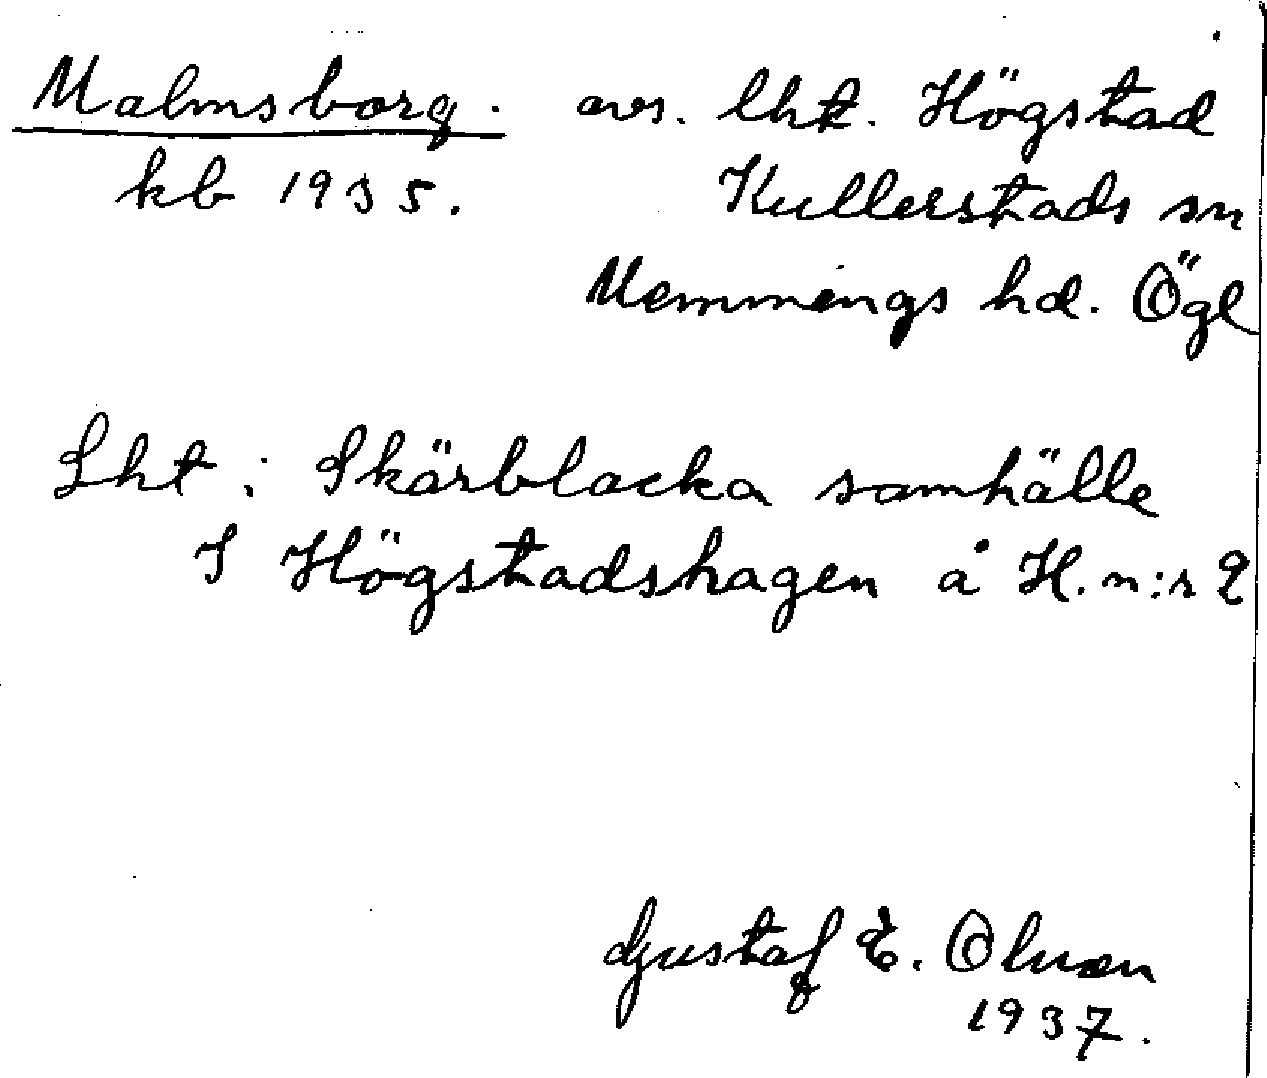 Malmsborg. avs. lht. Högstad
kb 1935. Kullerstads sn
Memmings hd. Ögl
Lht: Skärblacka samhälle
I Högstadshagen å H. n:r 2
Gustaf E. Olsson
1937.